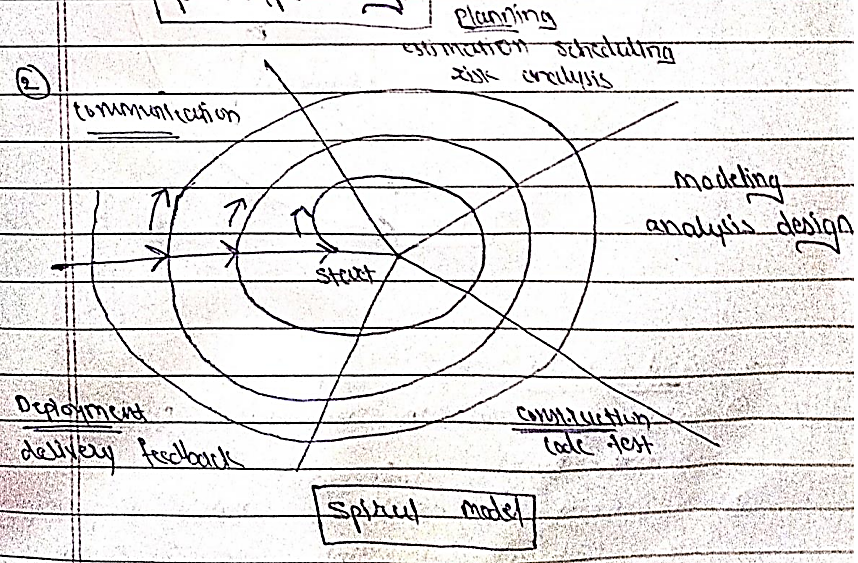 Planning
estimation scheduling
risk analysis
2
Communication
modeling
analysis design
Start
Deployment
delivery feedback
Construction
code test
Spiral model